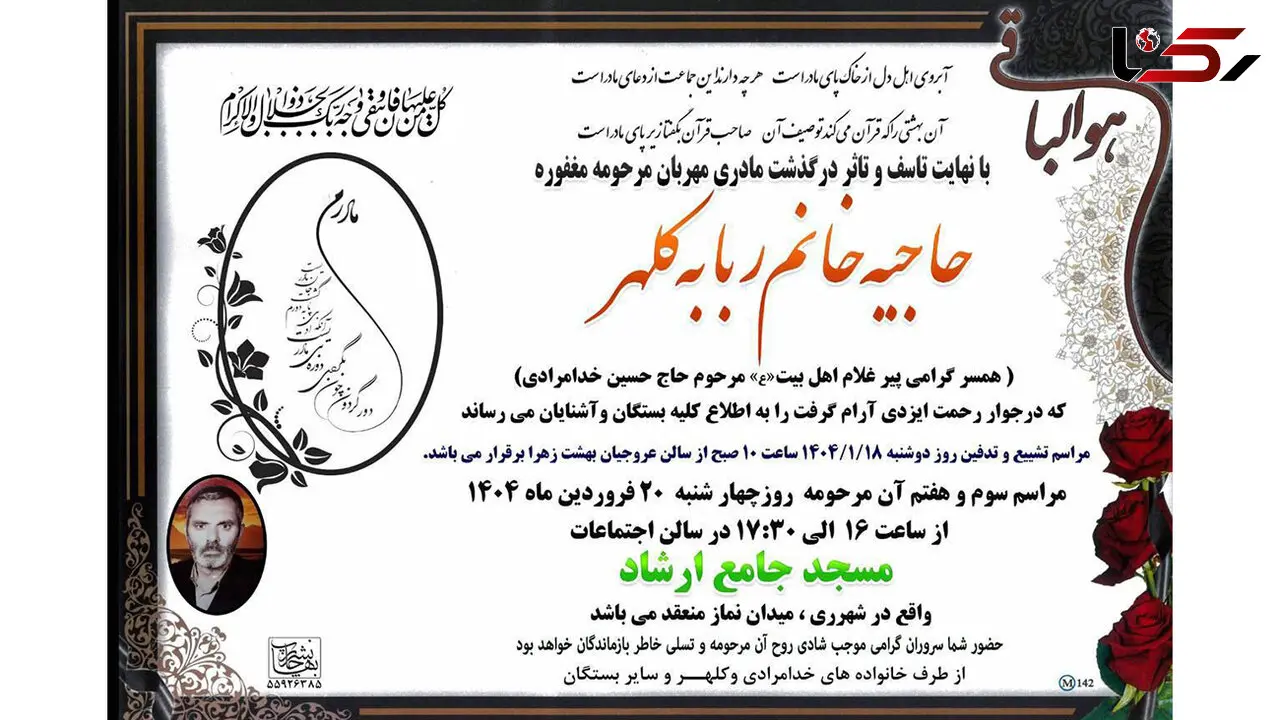 رکنا
هوالباقی
آبروی اهل دل از خاک پای مادر است هرچه دارند این جماعت از دعای مادر است
آن بهشتی را که قرآن می کند توصیف آن صاحب قرآن بگفتا زیر پای مادر است
کل من علیها فان و یبقی وجه ربک ذوالجلال والاکرام
با نهایت تاسف و تاثر درگذشت مادری مهربان مرحومه مغفوره
حاجیه خانم ربابه کلهر
مادرم
( همسر گرامی پیر غلام اهل بیت«ع» مرحوم حاج حسین خدامرادی)
که درجوار رحمت ایزدی آرام گرفت را به اطلاع کلیه بستگان وآشنایان می رساند
مراسم تشییع و تدفین روز دوشنبه ۱۴۰۴/۱/۱۸ ساعت ۱۰ صبح از سالن عروجیان بهشت زهرا برقرار می باشد.
مراسم سوم و هفتم آن مرحومه روزچهار شنبه ۲۰ فروردین ماه ۱۴۰۴
از ساعت ۱۶ الی ۱۷:۳۰ در سالن اجتماعات
مسجد جامع ارشاد
واقع در شهرری ، میدان نماز منعقد می باشد
حضور شما سروران گرامی موجب شادی روح آن مرحومه و تسلی خاطر بازماندگان خواهد بود
از طرف خانواده های خدامرادی وکلهـــر و سایر بستگان
۵۵۹۲۶۳۸۵
M 142